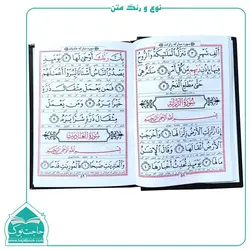 نوع و رنگ متن
أَلْفِ شَهْرٍ تَنَزَّلُ الْمَلَائِكَةُ وَالرُّوحُ
فِيهَا بِإِذْنِ رَبِّهِمْ مِنْ كُلِّ أَمْرٍ سَلَامٌ هِيَ
حَتَّى مَطْلَعِ الْفَجْرِ
سُورَةُ الزِّلْزَالِ
بِسْمِ اللَّهِ الرَّحْمَنِ الرَّحِيمِ
إِذَا زُلْزِلَتِ الْأَرْضُ زِلْزَالَهَا وَأَخْرَجَتِ
الْأَرْضُ أَثْقَالَهَا وَقَالَ الْإِنْسَانُ مَا لَهَا
يَوْمَئِذٍ تُحَدِّثُ أَخْبَارَهَا بِأَنَّ
رَبَّكَ أَوْحَى لَهَا يَوْمَئِذٍ
يَصْدُرُ النَّاسُ أَشْتَاتًا لِيُرَوْا أَعْمَالَهُمْ
فَمَنْ يَعْمَلْ مِثْقَالَ ذَرَّةٍ
خَيْرًا يَرَهُ وَمَنْ يَعْمَلْ
مِثْقَالَ ذَرَّةٍ شَرًّا يَرَهُ
سُورَةُ الْعَادِيَاتِ
بِسْمِ اللَّهِ الرَّحْمَنِ الرَّحِيمِ
وَالْعَادِيَاتِ ضَبْحًا فَالْمُورِيَاتِ قَدْحًا
حاجت بوک